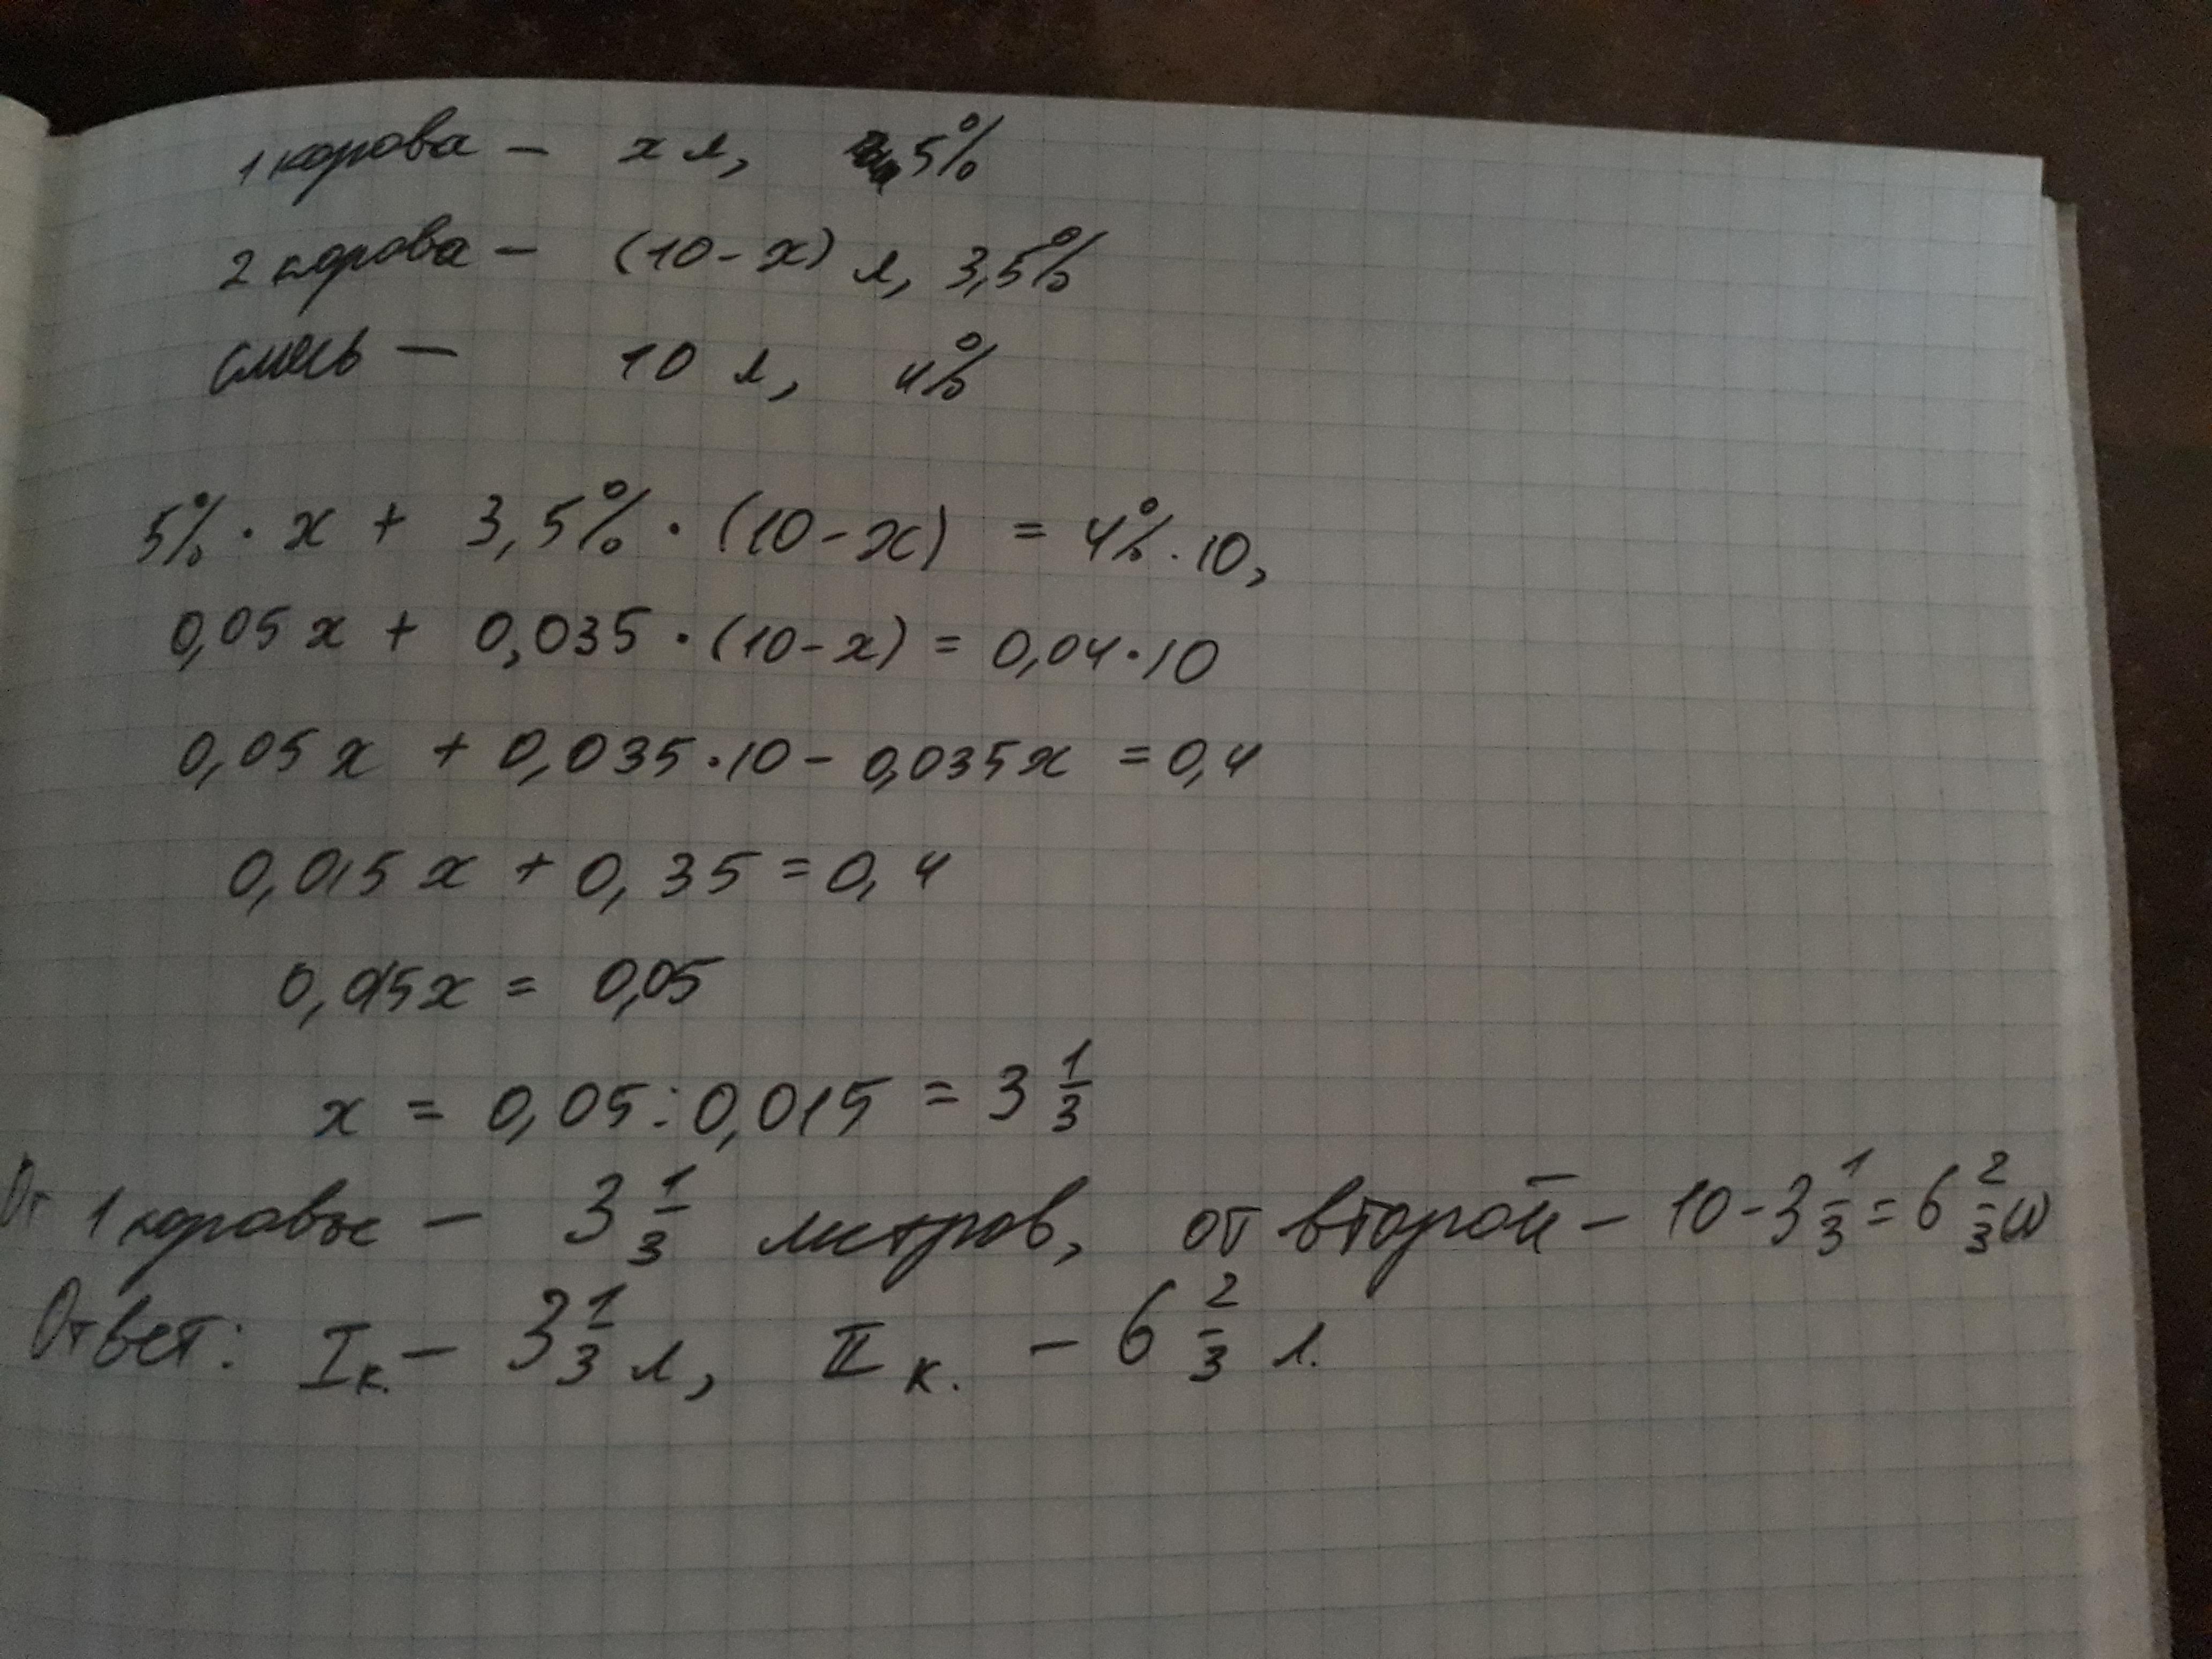 1 корова – x л, 5%
2 корова – (10-x) л, 3,5%
смесь – 10 л, 4%
5% · x + 3,5% · (10-x) = 4% · 10,
0,05x + 0,035 · (10-x) = 0,04·10
0,05x + 0,035·10 - 0,035x = 0,4
0,015x + 0,35 = 0,4
0,015x = 0,05
x = 0,05:0,015 = 3 1/3
От 1 коровы – 3 1/3 литров, от второй – 10-3 1/3 = 6 2/3
Ответ: I к. – 3 1/3 л, II к. – 6 2/3 л.